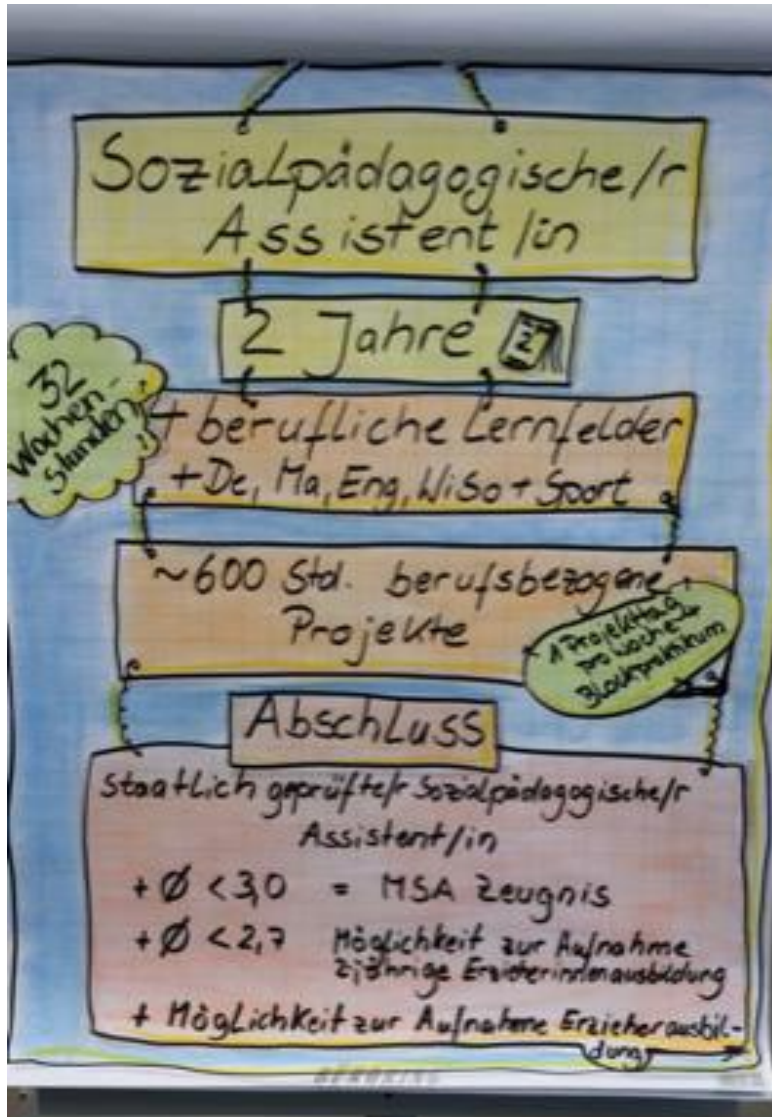 Sozialpädagogische/r
Assistent/in
2 Jahre
2
32
Wochen-
stunden
+ berufliche Lernfelder
+ De, Ma, Eng, WiSo + Sport
~600 Std. berufsbezogene
Projekte
1 Projekttag
pro Woche +
Blockpraktikum
Abschluss
Staatlich geprüfte/r Sozialpädagogische/r
Assistent/in
+ Ø < 3,0 = MSA Zeugnis
+ Ø < 2,7 Möglichkeit zur Aufnahme
2jährige Erzieherinnenausbildung
+ Möglichkeit zur Aufnahme Erzieherausbil-
dung